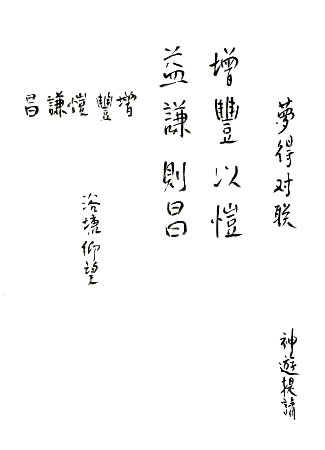 夢得对联
神遊提請
增豐以愷
益謙則昌
增豐愷謙昌
浴塘仰望